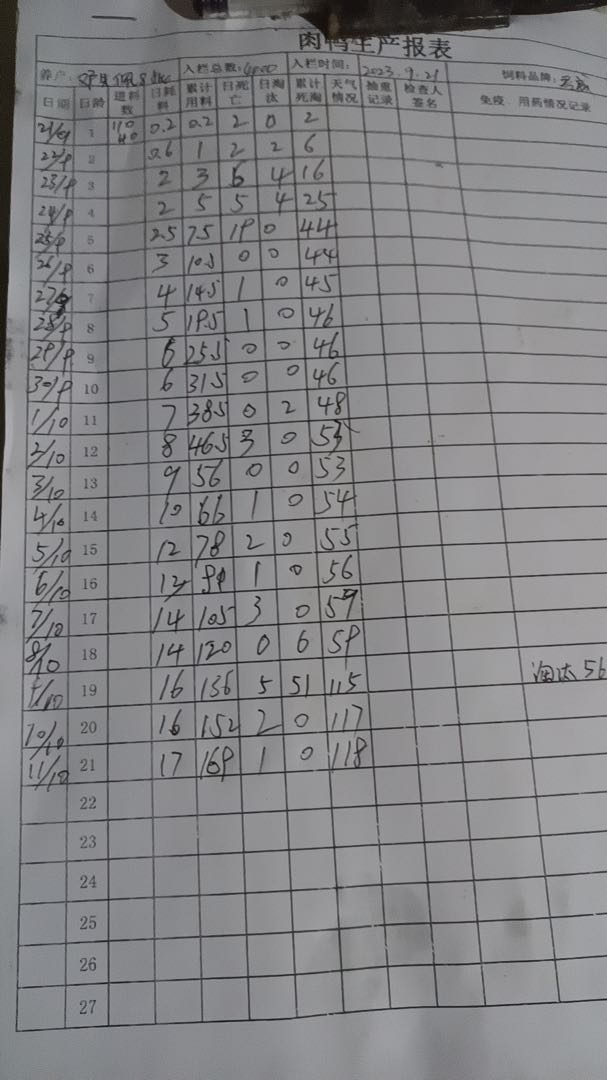 肉鸭生产报表
养户: 入栏总数: 4000 入栏时间: 2023.9.21 饲料品牌:
日期 日龄 进料数 日耗料 累计用料 日死亡 日淘汰 累计死淘 天气情况 抽重记录 检查人签名 免疫、用药情况记录
21/9 1 0.2 0.2 2 0 2
22/9 2 0.6 1 2 2 6
23/9 3 2 3 6 4 16
24/9 4 2 5 5 4 25
25/9 5 2.5 7.5 19 0 44
26/9 6 3 10.5 0 0 44
27/9 7 4 14.5 1 0 45
28/9 8 5 19.5 1 0 46
29/9 9 6 25.5 0 0 46
30/9 10 6 31.5 0 0 46
1/10 11 7 38.5 0 2 48
2/10 12 8 46.5 3 0 53
3/10 13 9 56 0 0 53
4/10 14 10 66 1 0 54
5/10 15 12 78 2 0 55
6/10 16 1 0 56
7/10 17 14 105 3 0 59
8/10 18 14 120 0 6 59
9/10 19 16 136 5 51 115 淘汰56
10/10 20 16 152 2 0 117
11/10 21 17 169 1 0 118
22
23
24
25
26
27